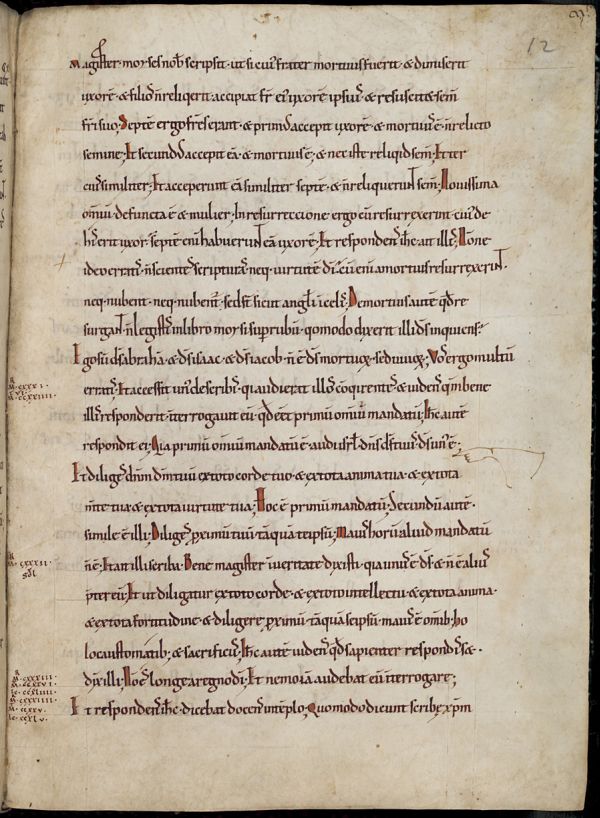 12
Magister · moyses nob̄ scripsit · ut si cui᷒ frater mortuus fuerit · & dimiserit
uxorē · & filios n̄ reliq̄rit · accipiat fr̄ ei᷒ uxorē ipsius · & resuscitet sem̄
fr̄i suo; Septē ergo fr̄s erant · & prim᷒ accepit uxorē · & mortuus ē · n̄ relicto
semine; Et secund᷒ accepit eā · & mortuus ē; & nec iste reliquid sem̄; Et ter
ci᷒ similiter; Et acceperunt eā similiter septē · & n̄ reliquerunt sem̄; Nouissima
omiū defuncta ē & mulier; In resurreccione ergo cū resurrexerint cui᷒ de
his erit uxor · septē eni habuerunt eā uxorē; Et respondens ihc ait illis; Nonne
ideo erratis · n̄ scientes scripturas neq · uirtutē di; Cū eni a mortuis resurrexerint ·
neq · nubent · neq · nubent᷒ · sed s̄t sicut angl̄i in celis; De mortuis autē qd re
surgant · n̄ legistis in libro moysi sup rubū · qomodo dixerit illi ds inquiens;
Ego sū ds abrahā · & ds isaac · & ds iacob · n̄ ē ds mortuoꝝ · sed uiuoꝝ; Vos ergo multū
erratis; Et accessit un᷒ de scribis · qui audierat illos coqirentes · & uidens qm̄ bene
illis responderit · interrogauit eū · qd eet primū omiū mandatū; Ihc autē
respondit ei; Quia primū omiū mandatū ē · audi isrl · dns ds tuus · ds un᷒ ē;
Et diliges dnm dm tuū ex toto corde tuo · & ex tota anima tua · & ex tota
mte tua & ex tota uirtute tua; Hoc ē primū mandatū; Secundū autē ·
simile ē illi; Diliges pximū tuū tāquā te ipsū; Maius horū aliud mandatū
n̄ ē; Et ait illi scriba · Bene magister in ueritate dixisti · quia unus ē ds · & n̄ ē alius
pter eū; Et ut diligatur ex toto corde · & ex toto intellectu · & ex tota anima ·
& ex tota fortitudine · & diligere pximū · tāquā seipsū · maius ē omib; ho
locaustomatib; & sacrificiis; Ihc autē uidens qd sapienter respondisset ·
dix illi; Non es longe a regno di; Et nemo iā audebat eū interrogare;
Et respondens ihc dicebat docens in templo; Quomodo dicunt scribę xpm